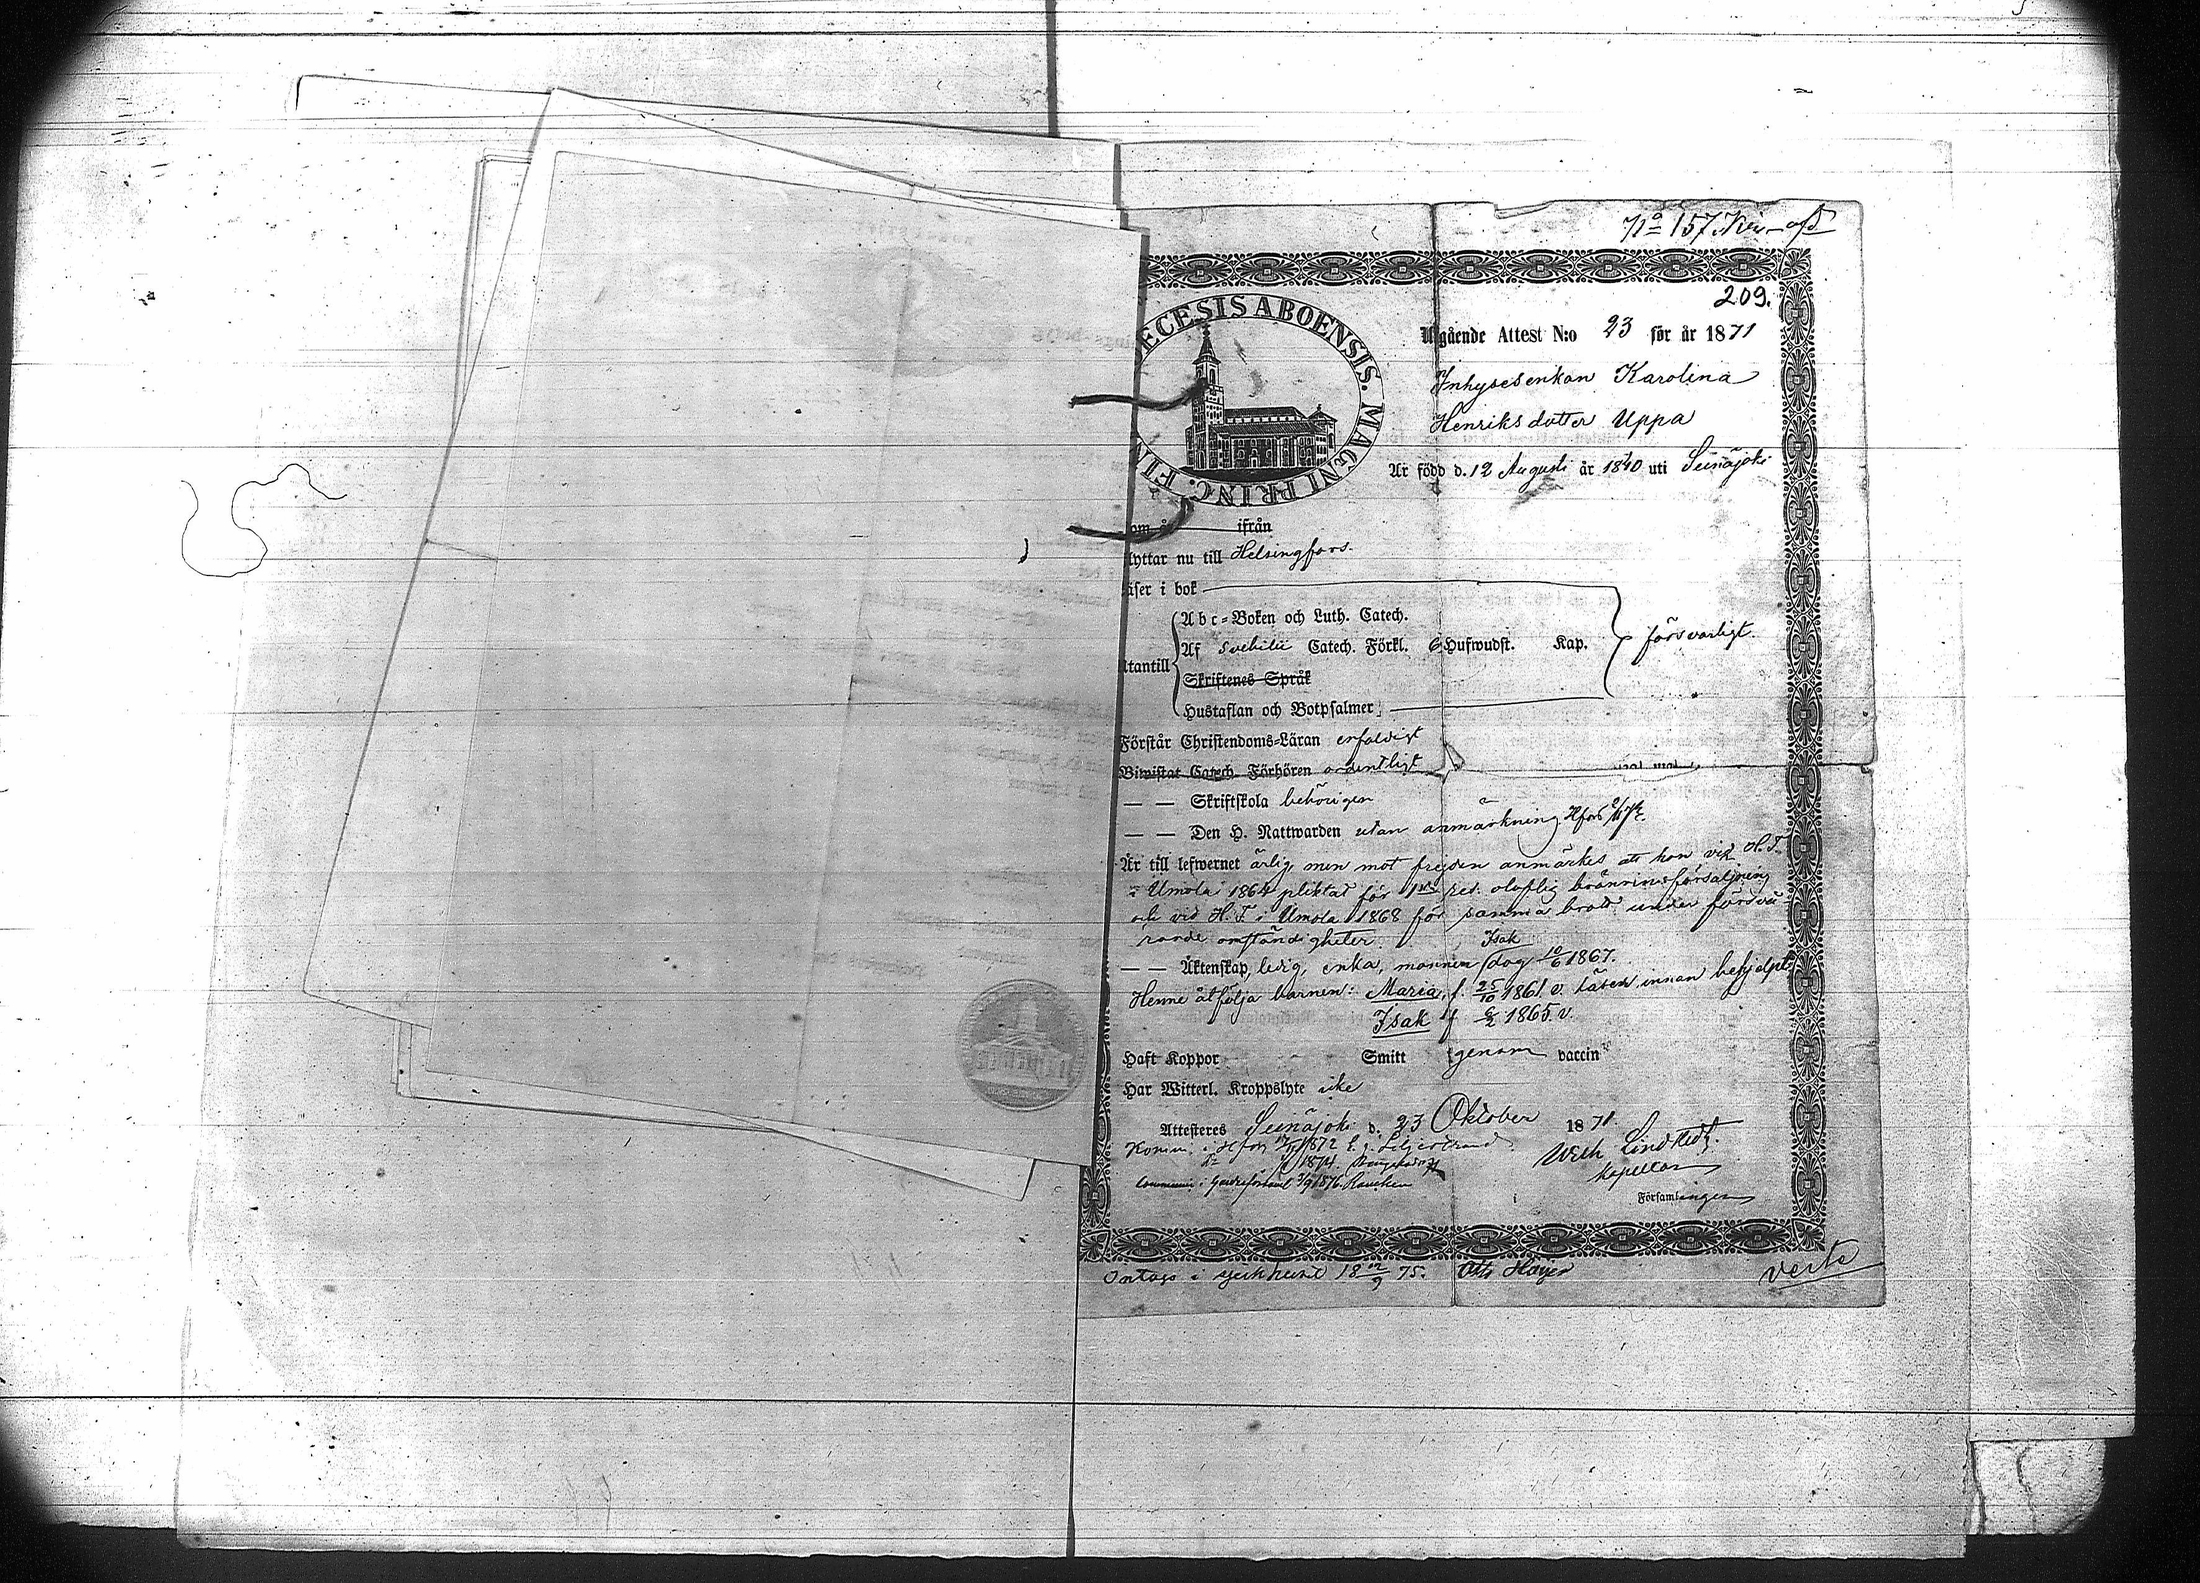 No 157.
209.
ECESIS ABOENSIS. MAGNI PRINC. FIN
Utgående Attest N:o 23 för år 1871
Inhysesenkan Karolina
Henriksdotter Uppa
Är född d. 12 Augusti år 1840 uti Seinäjoki
om år ifrån
lyttar nu till Helsingfors.
äser i bok
Abc-Boken och Luth. Catech.
Af Svebilii Catech. Förkl. 6 Hufwudst. Kap. försvarligt.
tantill
Skriftenes Språk
Hustaflan och Botpsalmer
Förstår Christendoms-Läran enfaldigt
Biwistat Catech. Förhören ordentligt
— — Skriftskola behörigen
— — Den H. Nattwarden utan anmärkning.
Är till lefwernet ärlig, men mot frejden anmärkes att hon vid H. T.
i Umola 1864 pliktat för 1sta res. oloflig bränvinsförsäljning
och vid H. T. i Umola 1868 för samma brott under försvå
rande omständigheter.
Isak
— — Äktenskap, ledig, enka, mannen dog 10/6 1867.
Henne åtfölja barnen: Maria, f. 25/10 1861 v. läsen innan behjelpl.
Isak f 6/2 1865. v.
Haft Koppor Smitt genom vaccin
Har Witterl. Kroppslyte icke
Attesteres Seinäjoki d. 23 Oktober 1871.
Komm. i Hfors 1872
1874.
1876.
Lindstedt.
kapellan
Församlingen
Intags i 18 12/9 75. Otto Höijer
verte